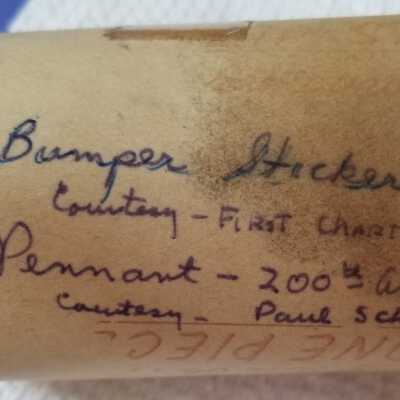 Bumper Sticker
Courtesy - FIRST CHART
Pennant - 200th a
Courtesy - Paul Sch
ONE PIECE